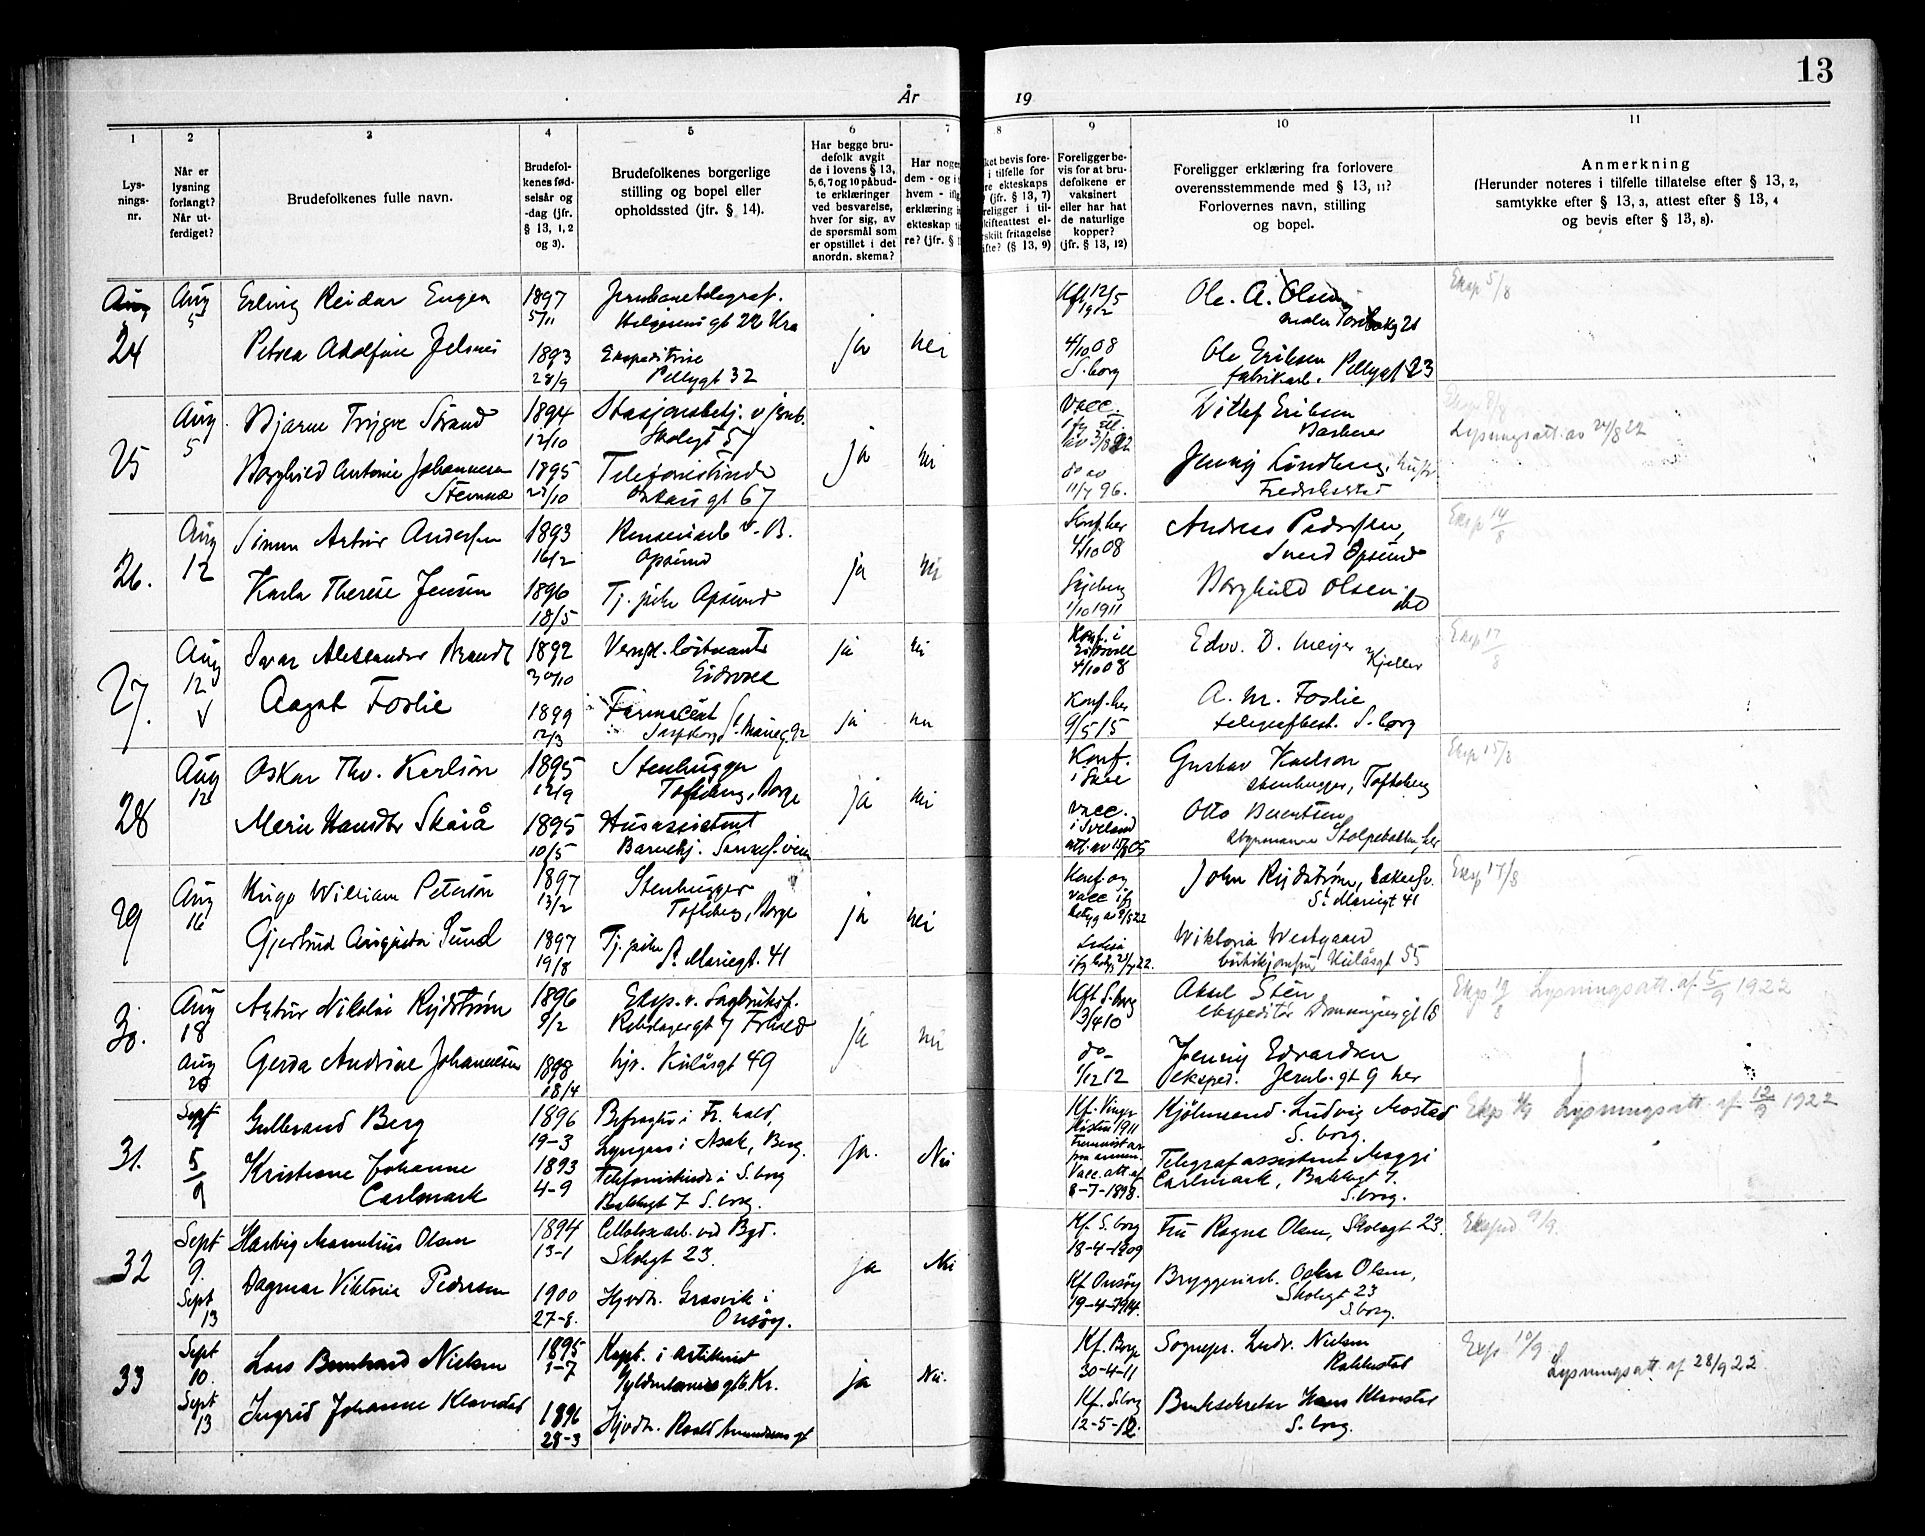 13
År 19
1 2 3 4 5 6 7 8 9 10 11
Lys-
nings-
nr.
Når er
lysning
forlangt?
Når ut-
ferdiget?
Brudefolkenes fulle navn.
Brudefol-
kenes fød-
selsår og
-dag (jfr.
§ 13, 1, 2
og 3).
Brudefolkenes borgerlige
stilling og bopel eller
opholdssted (jfr. § 14).
Har begge bru-
defolk avgit
de i lovens § 13,
5, 6, 7 og 10 påbud-
te erklæringer
ved besvarelse,
hver for sig, av
de spørsmål som
er opstillet i det
anordn. skema?
Har noge
dem - og i
hvem - if
erklæring
ekteskap
re? (jfr. §
ket bevis fore-
i tilfelle for
re ekteskaps
(jfr. § 13, 7)
religger i til-
kifteattest el-
rskilt fritagelse
ifte? (§ 13, 9)
Foreligger be-
vis for at bru-
defolkene er
vaksinert
eller har hat
de naturlige
kopper?
(jfr. § 13, 12)
Foreligger erklæring fra forlovere
overensstemmende med § 13, 11?
Forlovernes navn, stilling
og bopel.
Anmerkning
(Herunder noteres i tilfelle tillatelse efter § 13, 2,
samtykke efter § 13, 3, attest efter § 13, 4
og bevis efter § 13, 8).
24
Aug
5
Erling Reidar Engen
1897
5/11
Jernbanetelegraf.
22 Kra
Petrea Adolfine Jelsnes
1893
28/9
Ekspeditrise
Pellygt 32
ja nei
12/5
1912
4/10 08
S.borg
Ole. A. Olsen
Ole Eriksen
fabrikarb. Pellygt 23
Eksp 5/8
25
Aug
5
Bjarne Trygve Strand
1894
12/10
Stasjonsbetj. v/ Jrnb.
Skolegt 57
Borghild Antonie Johannesen
1895
Telefonistinde
Oskarsgt 67
ja nei
Vacc.
11/7 96.
Ditlef Eriksen
Barberer
Jenny Lindberg,
Fredrikstad
Lysningsatt. av 24/8 22
26.
Aug
12
Simen Artur Andersen
1893
16/2
Opsund
Karla Therese Jensen
1896
18/5
Tj. pike Opsund
ja nei
Konf. her
4/10 08
Skjeberg
1/10 1911
Andreas Pedersen,
Opsund
Borghild Olsen
ibd
Eksp 14/8
27.
Aug
12
V
Ivar Alexander Brandt
1892
30/10
Vernpl. løitnant
Eidsvoll
Aagot Foslie
1899
12/3
Farmaceut
Sarpsborg St. Marieg. 92
ja nei
ja nei
Konf. i
Eidsvoll
4/10 08
Konf. her
9/5 15
Edv. D. Meijer
Kjeller
A. M. Foslie
telegrafbest. S.borg
Eksp 17/8
28
Aug
12
Oskar Thv. Karlson
1895
12/9
Stenhugger
Tofteberg, Borge
Merie Skaiå
1895
10/5
Husassistent
Barnehj.
ja nei
Konf.
i Skee
Vacc.
i Sveland
att. av 15/8 05
Gustav Karlson
stenhugger, Tofteberg
Otto Berentsen
Stolpebakken, her
Eksp 15/8
29
Aug
16
Hugo William Peterson
1897
13/2
Stenhugger
Tofteberg, Borge
Gjertrud Augusta Sund
1897
19/8
Tj. pike
St. Mariegt. 41
ja nei
Konf. og
vacc ifg
John Rydstrøm,
St. Mariegt 41
Wiktoria Westgaard
Kulåsgt 55
Eksp 17/8
30.
Aug
18
Aug
Artur Nikolai Rydstrøm
1896
9/2
Eksp. v. Sagbruksf.
Rebslagergt 7 Fr.stad
Gerda Andrine Johannesen
1898
18/4
hjv. Kulåsgt 49
ja nei
Kft S.borg
3/4 10
do
1/12 12
Aksel Sten
ekspeditør Dronningensgt 18
Jenny Edvardsen
eksped. Jernb.gt 9 her
Eksp 19/8 Lysningsatt. af 5/9 1922
31.
Sept
5/9
Gulbrand Berg
1896
19-3
Befragter i Fr.hald,
Lyngaas i Asak, Berg.
Kristiane Johanne
Carlmark
1893
4-9
Telefonistinde i S.borg
Bakkegt 7 S.borg.
ja. Nei
Kf. Vinger
1911
Vacc. att. af
8-7-1898.
Kjøbmand Ludvig Mostad
S.borg.
Telegrafassistent Maggi
Carlmark, Bakkegt 7.
S.borg.
Lysningsatt. af 12/9 1922
32
Sept
9.
Sept
13
Hartvig Marelius Olsen
1894
13-1
Cellulosearb. ved Bgd.
Skolegt 23.
Dagmar Viktoria Pedersen
1900
27-8.
Hjvdt. Græsvik i
Onsøy.
ja Nei
Kf. S.borg
18-4-1909
Kf Onsøy
19-4-1914.
Fru Ragna Olsen, Skolegt 23.
Bryggeriarb. Oskar Olsen,
Skolegt 23
S.borg.
Eksped 9/9.
33
Sept
10.
Sept
13
Lars Bernhard Nielsen
1895
3-7
Kapt. i Artilleriet
Gyldenløvesgt 6. Kr.
Ingrid Johanne Klavestad
1896
28-3
Hjvdt. Roald Amundsens gt
ja Nei.
Kf. Borge
30-4-11
Kf. S.borg
12-5-12.
Sognepr. Ludv. Nielsen
Rakkestad
Banksekretær Hans Klavestad
S.borg.
Eksp 10/9
Lysningsatt. af 28/9 22